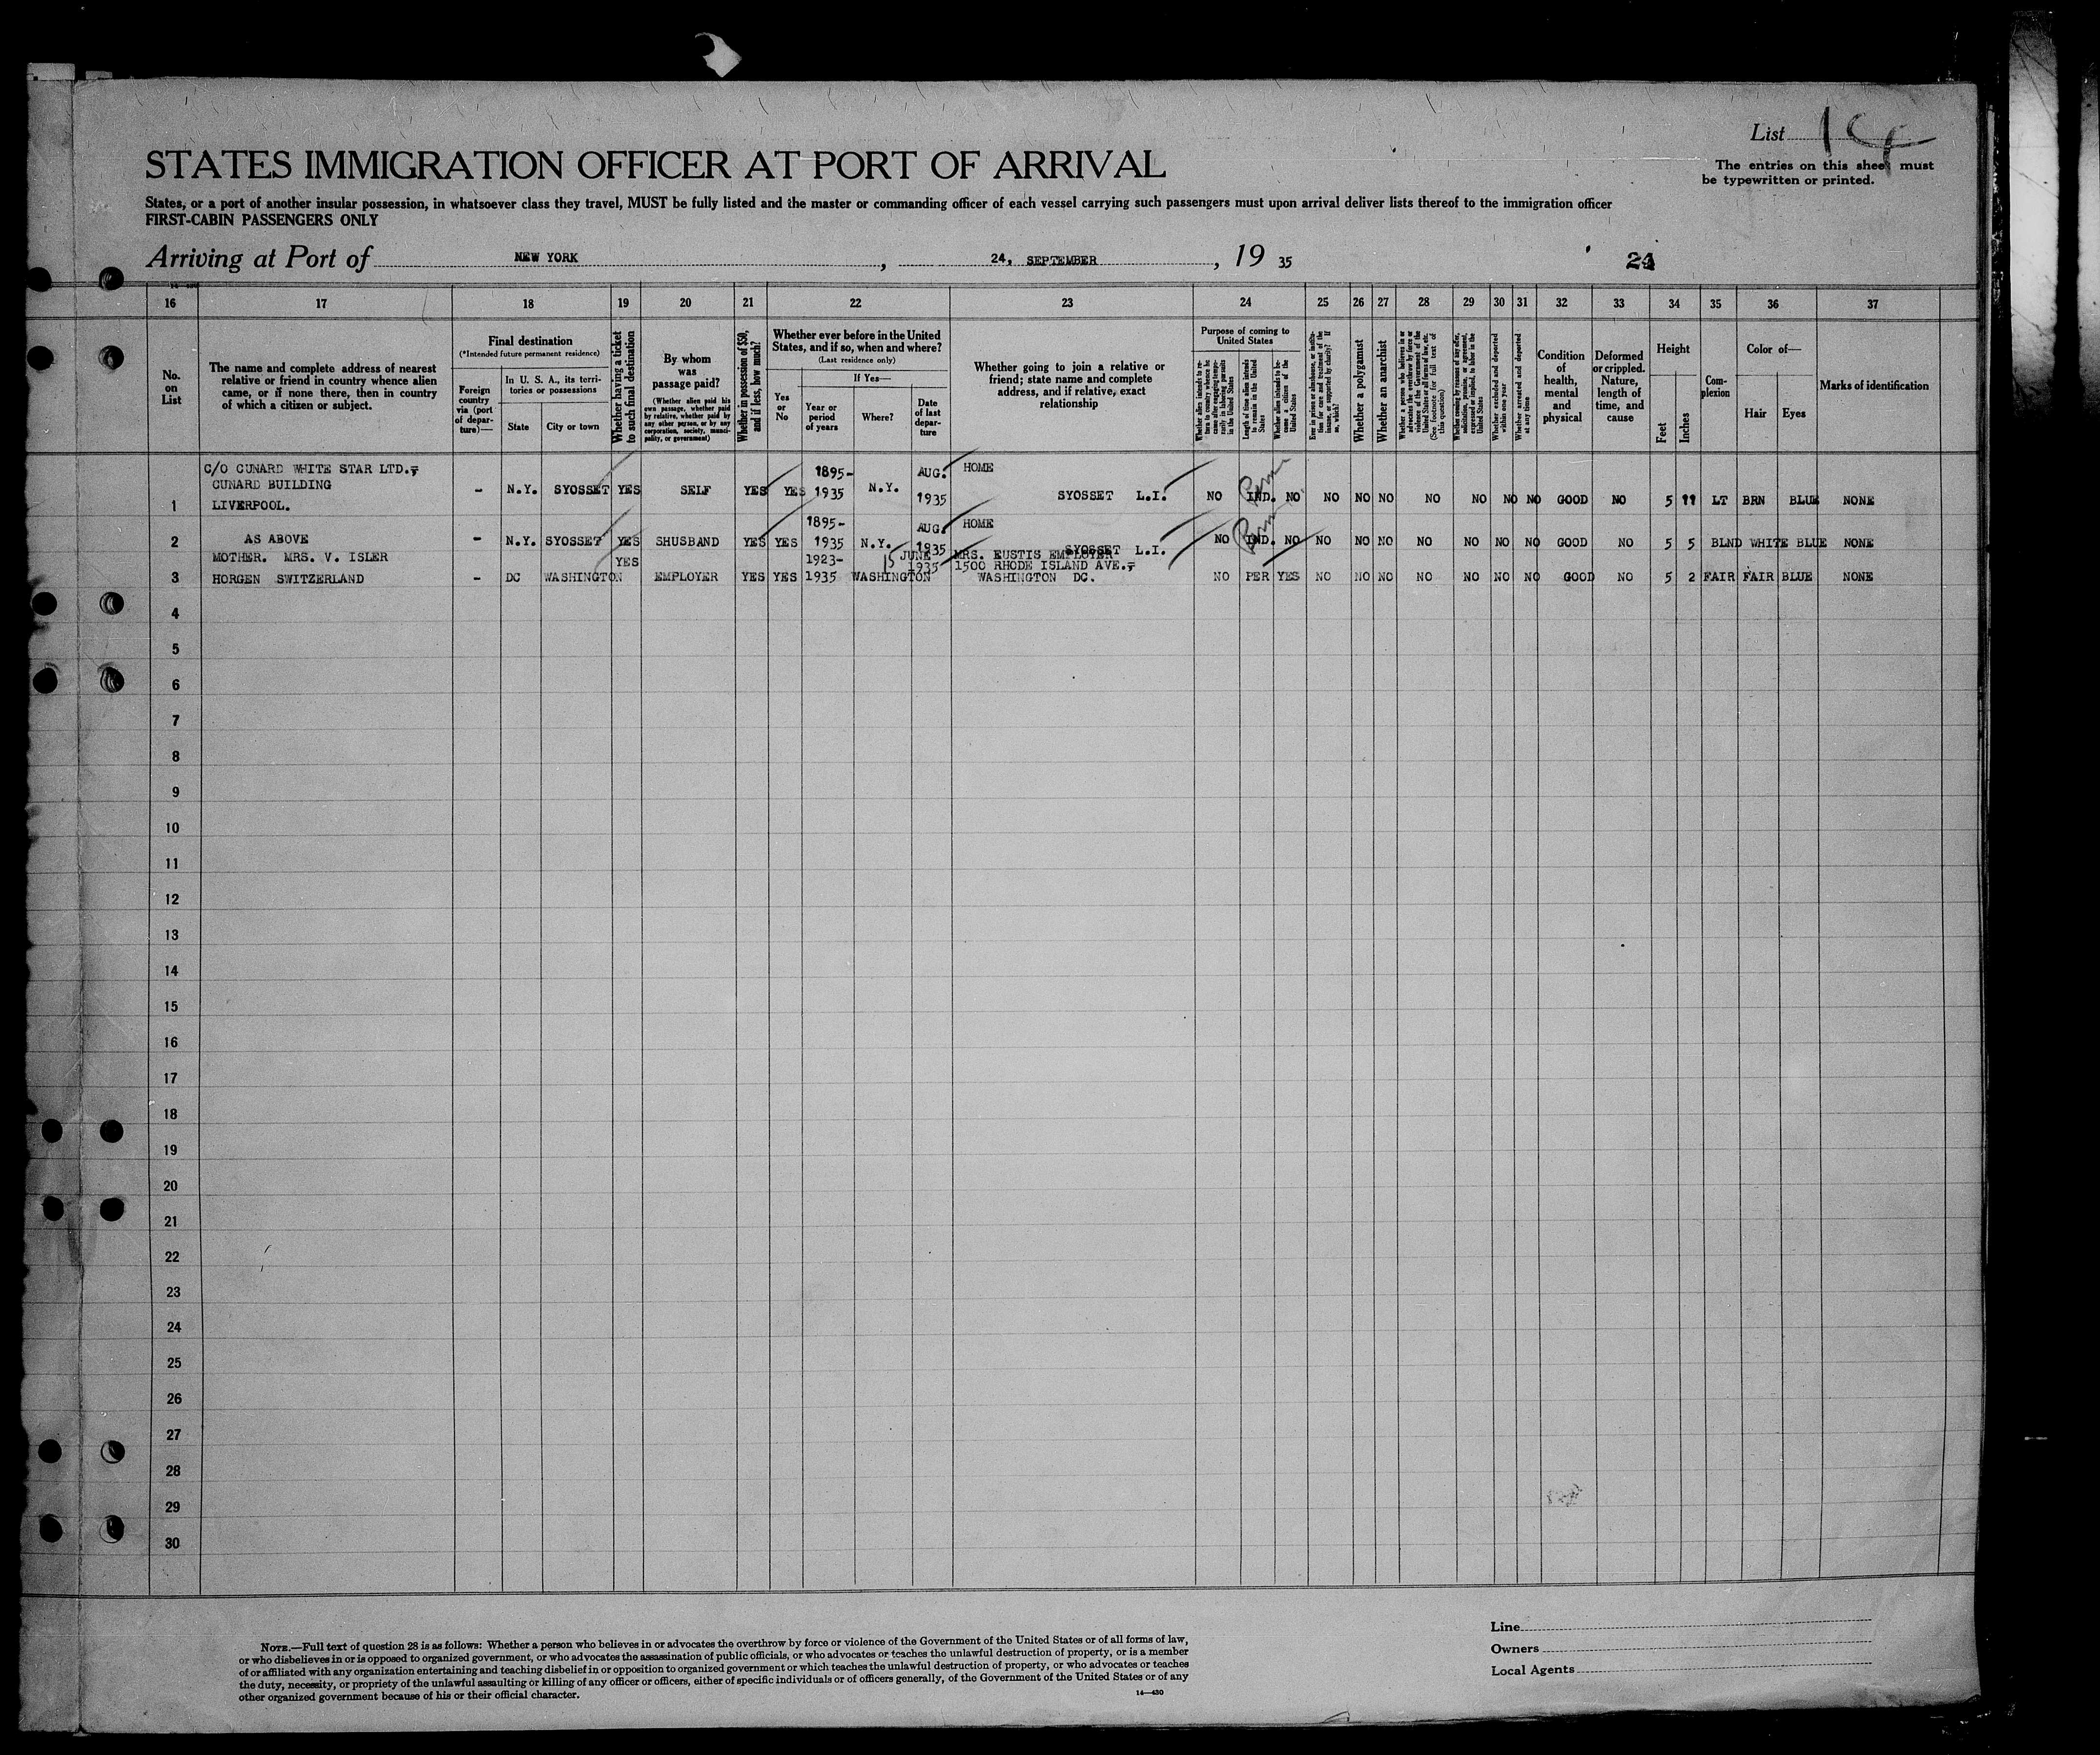 List
STATES IMMIGRATION OFFICER AT PORT OF ARRIVAL
The entries on this sheet must
be typewritten or printed.
States, or a port of another insular possession, in whatsoever class they travel, MUST be fully listed and the master or commanding officer of each vessel carrying such passengers must upon arrival deliver lists thereof to the immigration officer
FIRST-CABIN PASSENGERS ONLY
Arriving at Port of NEW YORK, 24, SEPTEMBER, 19 35
24
16 17 18 19 20 21 22 23 24 25 26 27 28 29 30 31 32 33 34 35 36 37
No. on List
The name and complete address of nearest relative or friend in country whence alien came, or if none there, then in country of which a citizen or subject.
Final destination
(*Intended future permanent residence)
Foreign country via (port of departure)—
In U. S. A., its territories or possessions
State
City or town
Whether having a ticket to such final destination
By whom was passage paid?
(Whether alien paid his own passage, whether paid by relative, whether paid by any other person, or by any corporation, society, municipality, or government)
Whether in possession of $50, and if less, how much?
Whether ever before in the United States, and if so, when and where?
(Last residence only)
Yes or No
If Yes—
Year or period of years
Where?
Date of last departure
Whether going to join a relative or friend; state name and complete address, and if relative, exact relationship
Purpose of coming to United States
Whether alien intends to return to country whence he came after engaging temporarily in laboring pursuits in the United States
Length of time alien intends to remain in the United States
Whether alien intends to become a citizen of the United States
Ever in prison or almshouse, or institution for care and treatment of the insane, or supported by charity? If so, which?
Whether a polygamist
Whether an anarchist
Whether a person who believes in or advocates the overthrow by force or violence of the Government of the United States or all forms of law, etc. (See footnote for full text of this question)
Whether coming by reason of any offer, solicitation, promise, or agreement, expressed or implied, to labor in the United States
Whether excluded and deported within one year
Whether arrested and deported at any time
Condition of health, mental and physical
Deformed or crippled. Nature, length of time, and cause
Height
Feet
Inches
Complexion
Color of—
Hair
Eyes
Marks of identification
C/O CUNARD WHITE STAR LTD.,
CUNARD BUILDING
1 LIVERPOOL. - N.Y. SYOSSET YES SELF YES YES 1895-1935 N.Y. AUG. 1935 HOME SYOSSET L.I. NO IND. NO NO NO NO NO NO NO NO GOOD NO 5 11 LT BRN BLUE NONE
Perm
2 AS ABOVE - N.Y. SYOSSET YES SHUSBAND YES YES 1895-1935 N.Y. AUG. 1935 HOME SYOSSET L.I. NO IND. NO NO NO NO NO NO NO NO GOOD NO 5 5 BLND WHITE BLUE NONE
Perm
MOTHER. MRS. V. ISLER YES 1923- 15 JUNE MRS. EUSTIS EMPLOYER
1935 1500 RHODE ISLAND AVE.,
3 HORGEN SWITZERLAND - DC WASHINGTON EMPLOYER YES YES 1935 WASHINGTON WASHINGTON DC. NO PER YES NO NO NO NO NO NO NO GOOD NO 5 2 FAIR FAIR BLUE NONE
4
5
6
7
8
9
10
11
12
13
14
15
16
17
18
19
20
21
22
23
24
25
26
27
28
29
30
NOTE.—Full text of question 28 is as follows: Whether a person who believes in or advocates the overthrow by force or violence of the Government of the United States or of all forms of law,
or who disbelieves in or is opposed to organized government, or who advocates the assassination of public officials, or who advocates or teaches the unlawful destruction of property, or is a member
of or affiliated with any organization entertaining and teaching disbelief in or opposition to organized government or which teaches the unlawful destruction of property, or who advocates or teaches
the duty, necessity, or propriety of the unlawful assaulting or killing of any officer or officers, either of specific individuals or of officers generally, of the Government of the United States or of any
other organized government because of his or their official character.
14—430
Line
Owners
Local Agents